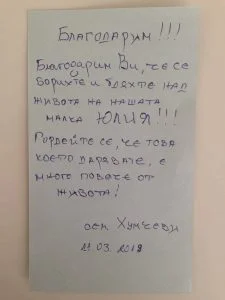 Благодарим!!!
Благодарим Ви, че се
борихте и бдяхте над
живота на нашата
малка Юлия!!!
Гордейте се, че това
което дарявате, е
много повече от
живота!
сем. Хумчеви
11.03.2019